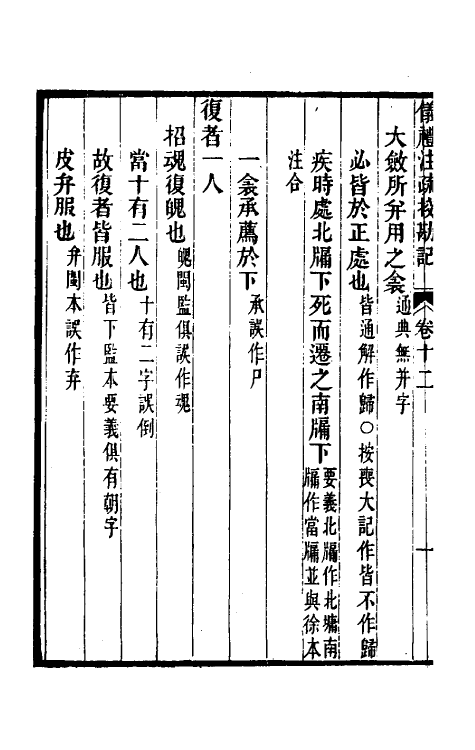 儀禮注疏挍勘記 卷十二 十
大斂所并用之衾 通典無并字
必皆於正處也 皆通解作歸○按喪大記作皆不作歸
疾時處北牖下死而遷之南牖下 要義北牖作北墉南牖作當牖並與徐本
注合
一衾承薦於下 承誤作尸
復者一人
招魂復魄也 魄閩監俱誤作魂
當十有二人也 十有二字誤倒
故復者皆服也 皆下監本要義俱有朝字
皮弁服也 弁閩本誤作弃